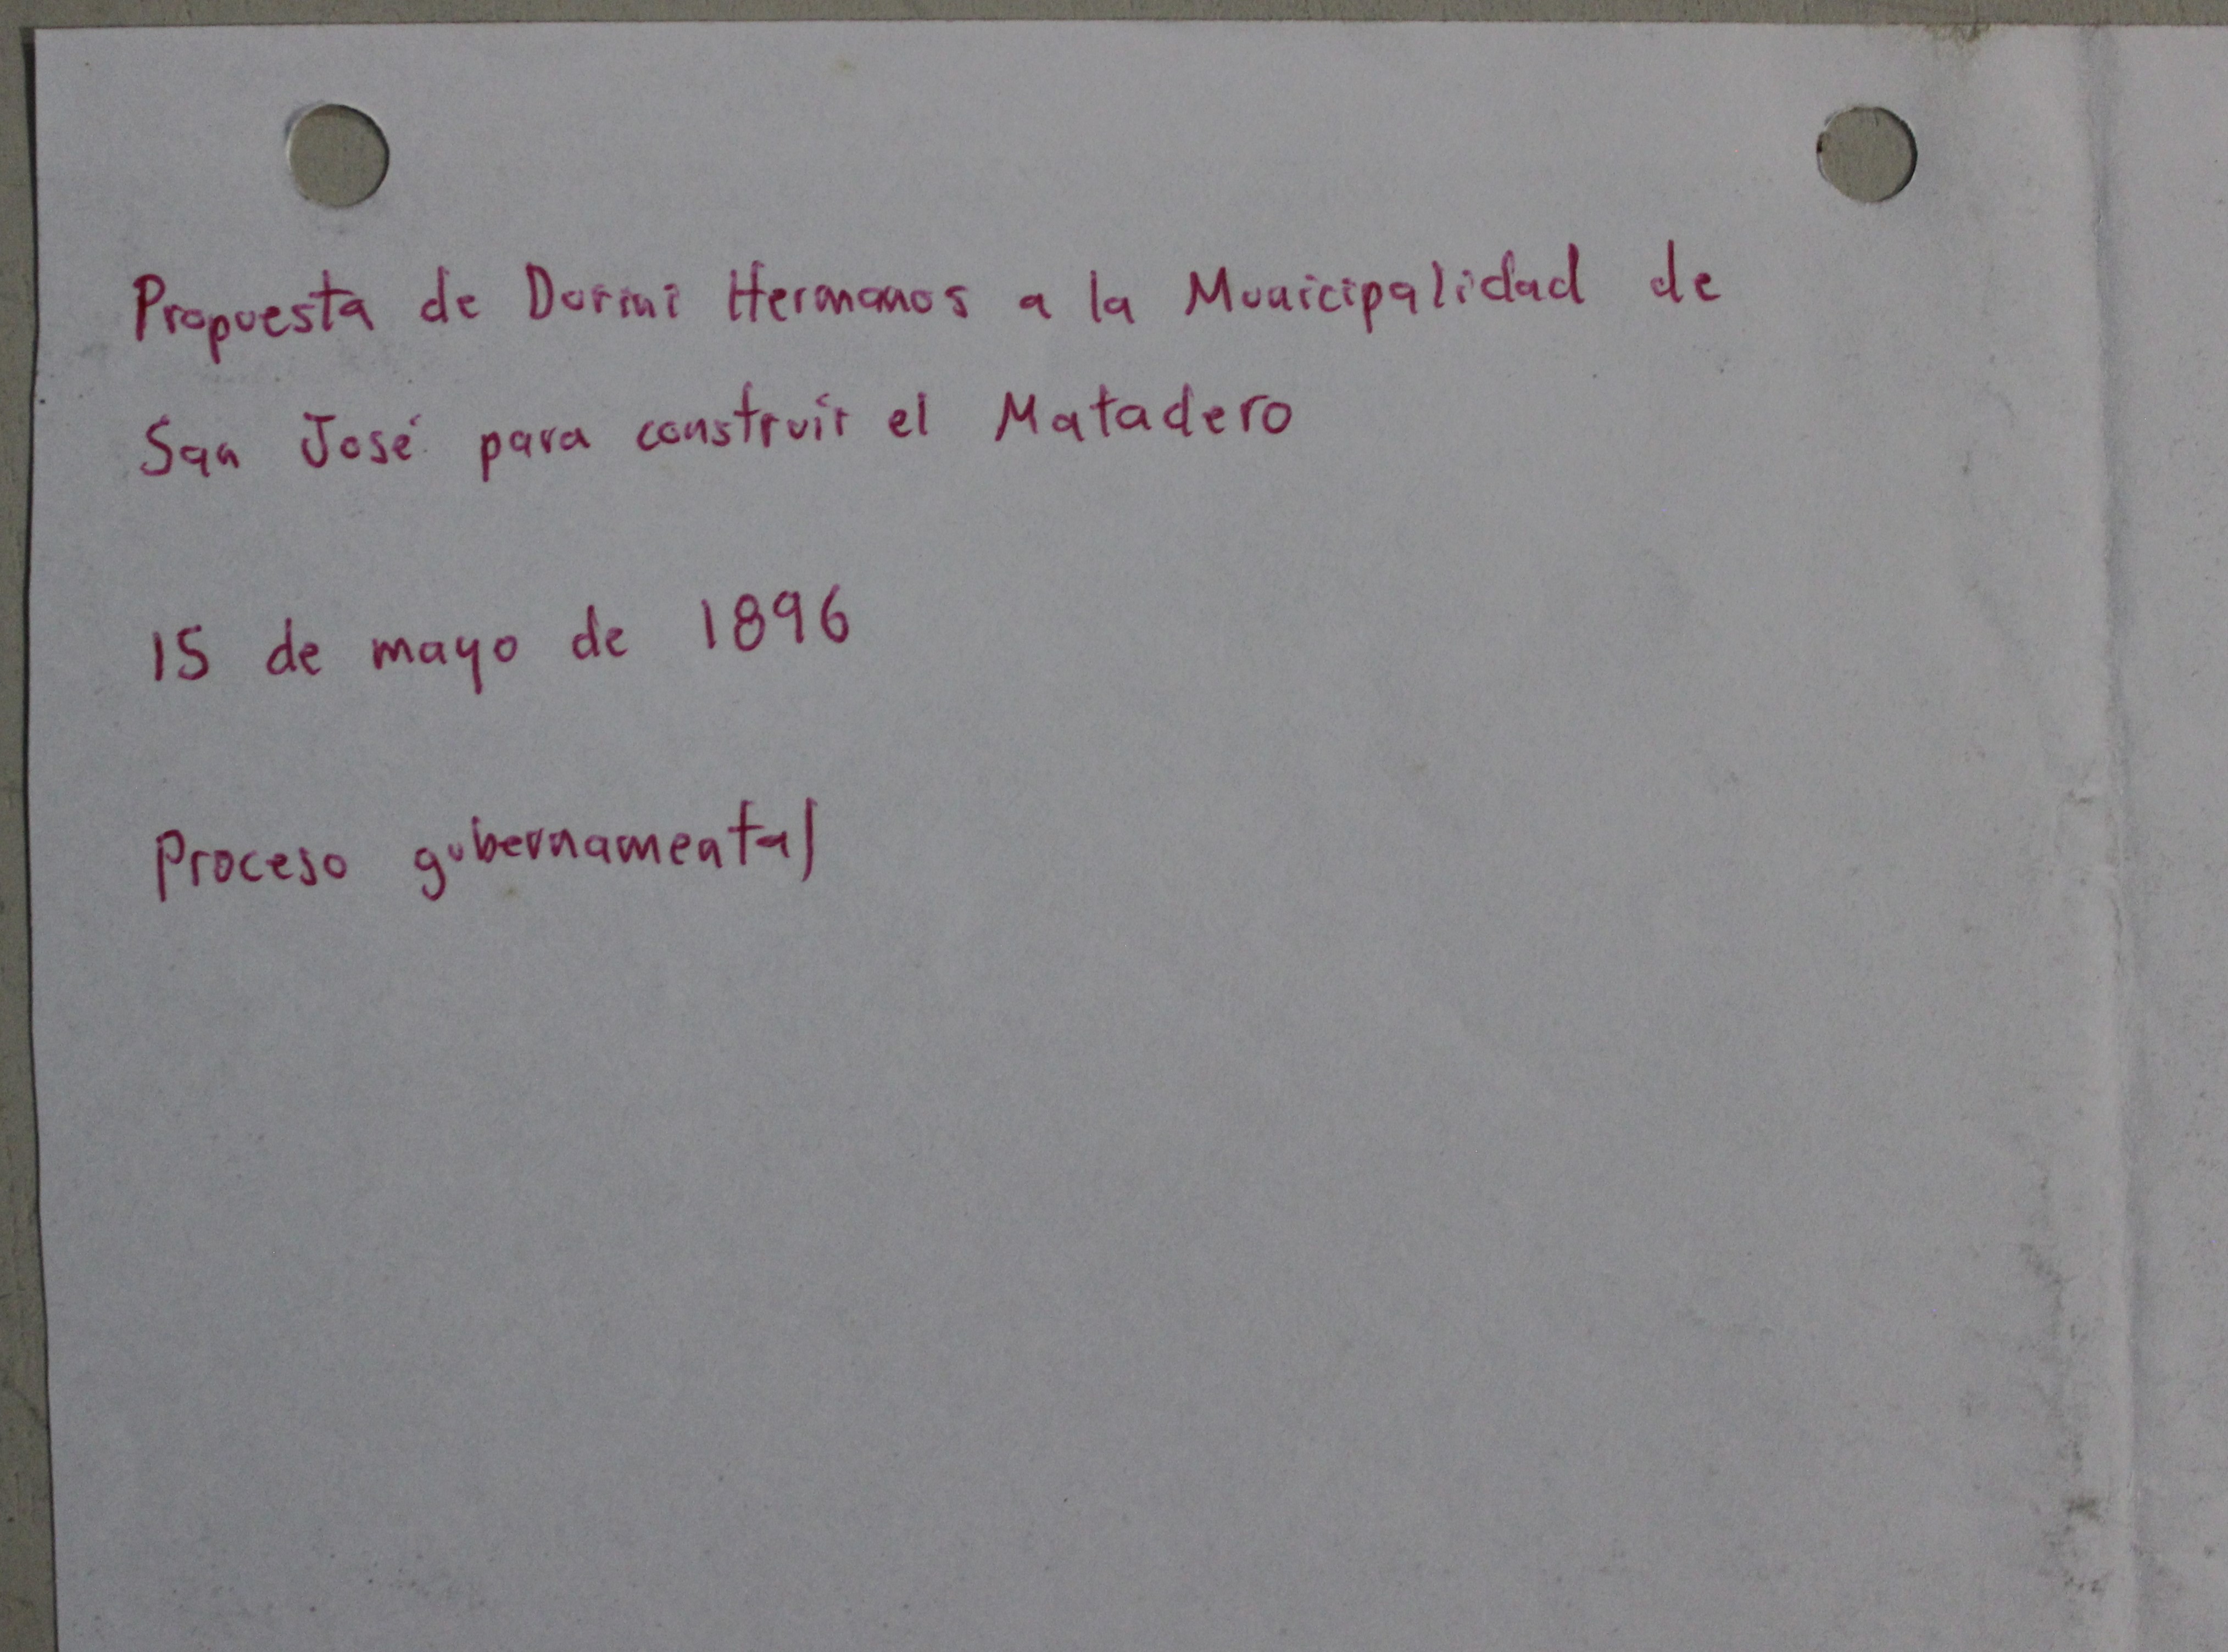 Propuesta de Dorini Hermanos a la Municipalidad de
San José para construir el Matadero
15 de mayo de 1896
Proceso gubernamental